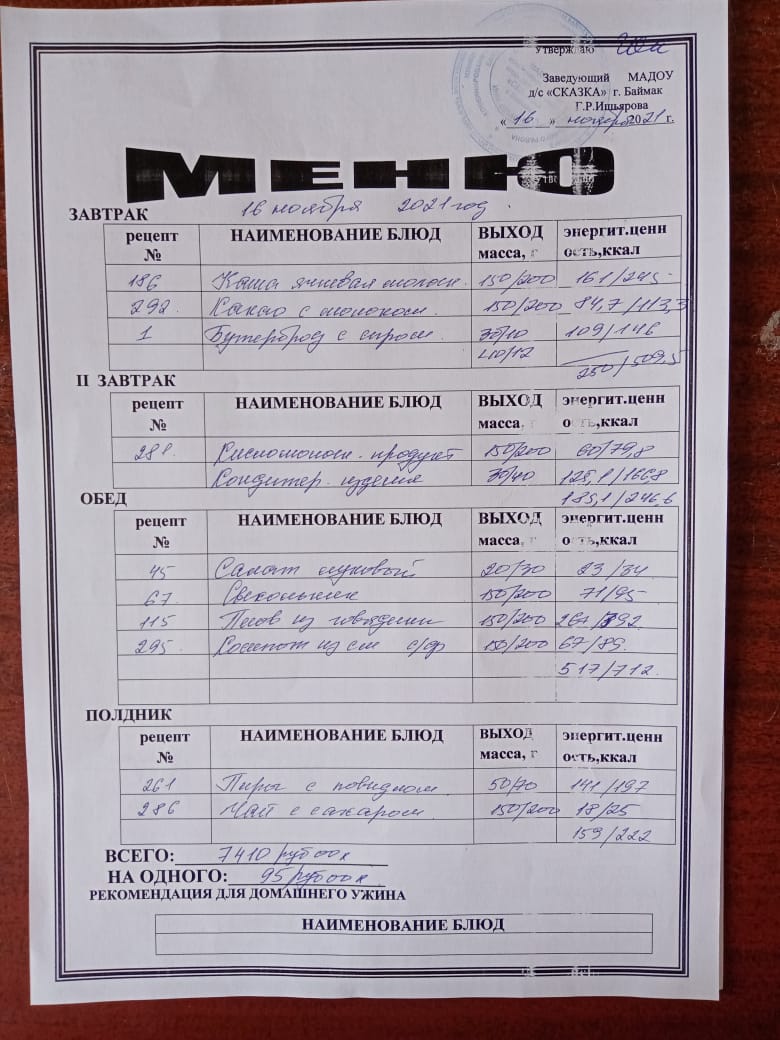 Утверждаю
Заведующий МАДОУ
д/с «СКАЗКА» г. Баймак
Г.Р.Ишьярова
«16» ноября 2021 г.
МЕНЮ
16 ноября 2021 год.
ЗАВТРАК
рецепт № НАИМЕНОВАНИЕ БЛЮД ВЫХОД масса, г энергит.ценн ость,ккал
186 Каша ячневая молочн. 150/200 161/245
292. Какао с молоком. 150/200 84,7/113,3
1 Бутерброд с сыром. 30/10 109/146
40/12 250/509,5
II ЗАВТРАК
рецепт № НАИМЕНОВАНИЕ БЛЮД ВЫХОД масса, г энергит.ценн ость,ккал
Кисломолочн. продукт 150/200 60/79,8
Кондитер. изделия 30/40 125,1/166,8
185,1/246,6
ОБЕД
рецепт № НАИМЕНОВАНИЕ БЛЮД ВЫХОД масса, г энергит.ценн ость,ккал
45 Салат луковый 20/30 23/34
67 Свекольник 150/200 71/95
115 Плов из говядины 150/200 267/392
295. Компот из см с/ф 150/200 67/89.
517/712.
ПОЛДНИК
рецепт № НАИМЕНОВАНИЕ БЛЮД ВЫХОД масса, г энергит.ценн ость,ккал
261 Пирог с повидлом 50/70 141/197
286 Чай с сахаром. 150/200 18/25
159/222
ВСЕГО: 7410 руб 00 к
НА ОДНОГО: 95 руб 00 к
РЕКОМЕНДАЦИЯ ДЛЯ ДОМАШНЕГО УЖИНА
НАИМЕНОВАНИЕ БЛЮД